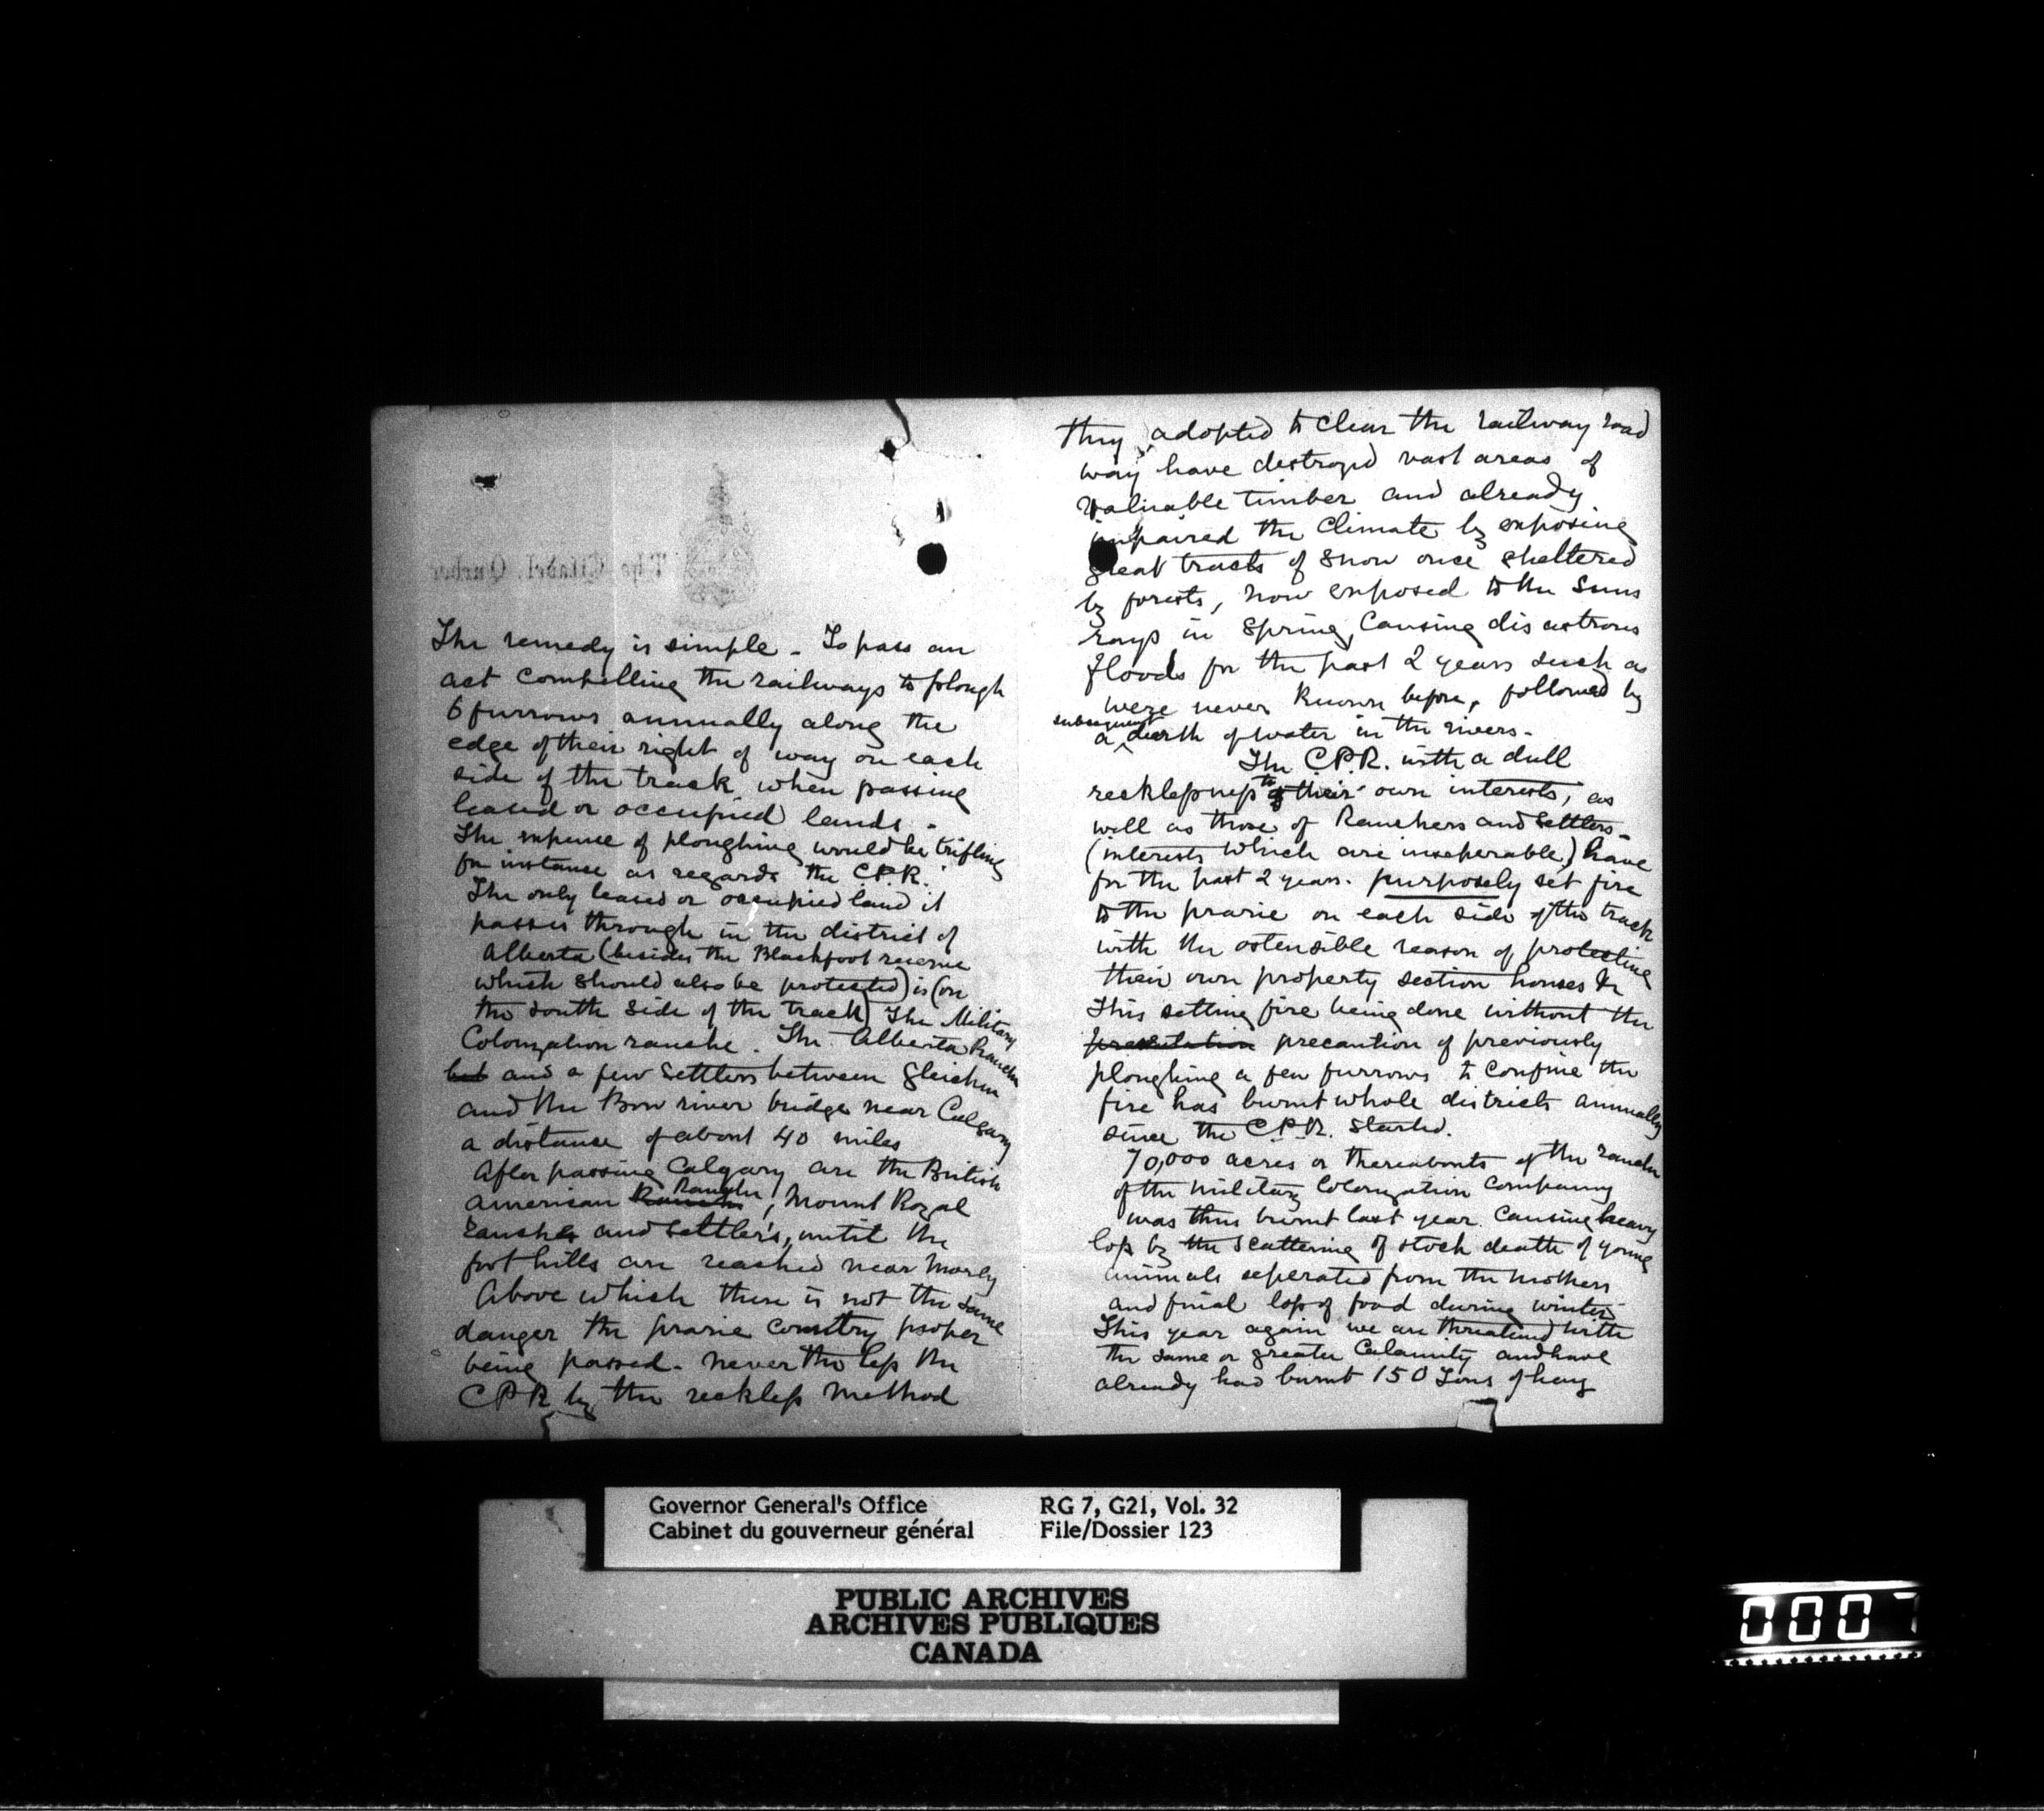 The Citadel, Quebec
The remedy is simple - To pass an
act compelling the railways to plough
6 furrows annually along the
edge of their right of way on each
side of the track when passing
leased or occupied lands -
The expense of ploughing would be trifling
for instance as regards the C.P.R.
The only leased or occupied land it
passes through in the district of
Alberta (besides the Blackfoot reserve
which should also be protected) is (on
the south side of the track) The Military
Colonization ranche. The Alberta Ranche
but and a few Settlers between Gleichen
and the Bow river bridge near Calgary
a distance of about 40 miles
After passing Calgary are the British
Ranche
American Ranche, Mount Royal
ranches and settlers, until the
foot hills are reached near Morley
Above which there is not the same
danger the prarie country proper
being passed - never the less the
CPR by the reckless method
they adopted to clear the railway road
way have destroyed vast areas of
valuable timber and already
impaired the Climate by exposing
great tracts of snow once sheltered
by forests, now exposed to the Suns
rays in Spring, Causing disastrous
floods for the past 2 years such as
were never known before, followed by
subsequent
a dearth of water in the rivers -
The C.P.R. with a dull
recklessness to of their own interests, as
well as those of Ranchers and Settlers -
(interests which are inseperable) have
for the past 2 years - purposely set fire
to the prarie on each side of the track
with the ostensible reason of protecting
their own property section houses &c
This setting fire being done without the
precaution of previously
ploughing a few furrows to confine the
fire has burnt whole districts annually
since the C.P.R. started.
70,000 acres or thereabouts of the ranche
of the Military Colonization Company
was thus burnt last year. Causing heavy
loss by the scattering of stock death of young
animals seperated from the mothers
and final loss of food during winter
This year again we are threatened with
the same or greater Calamity and have
already had burnt 150 Tons of hay
Governor General's Office
Cabinet du gouverneur général
RG 7, G21, Vol. 32
File/Dossier 123
PUBLIC ARCHIVES
ARCHIVES PUBLIQUES
CANADA
000